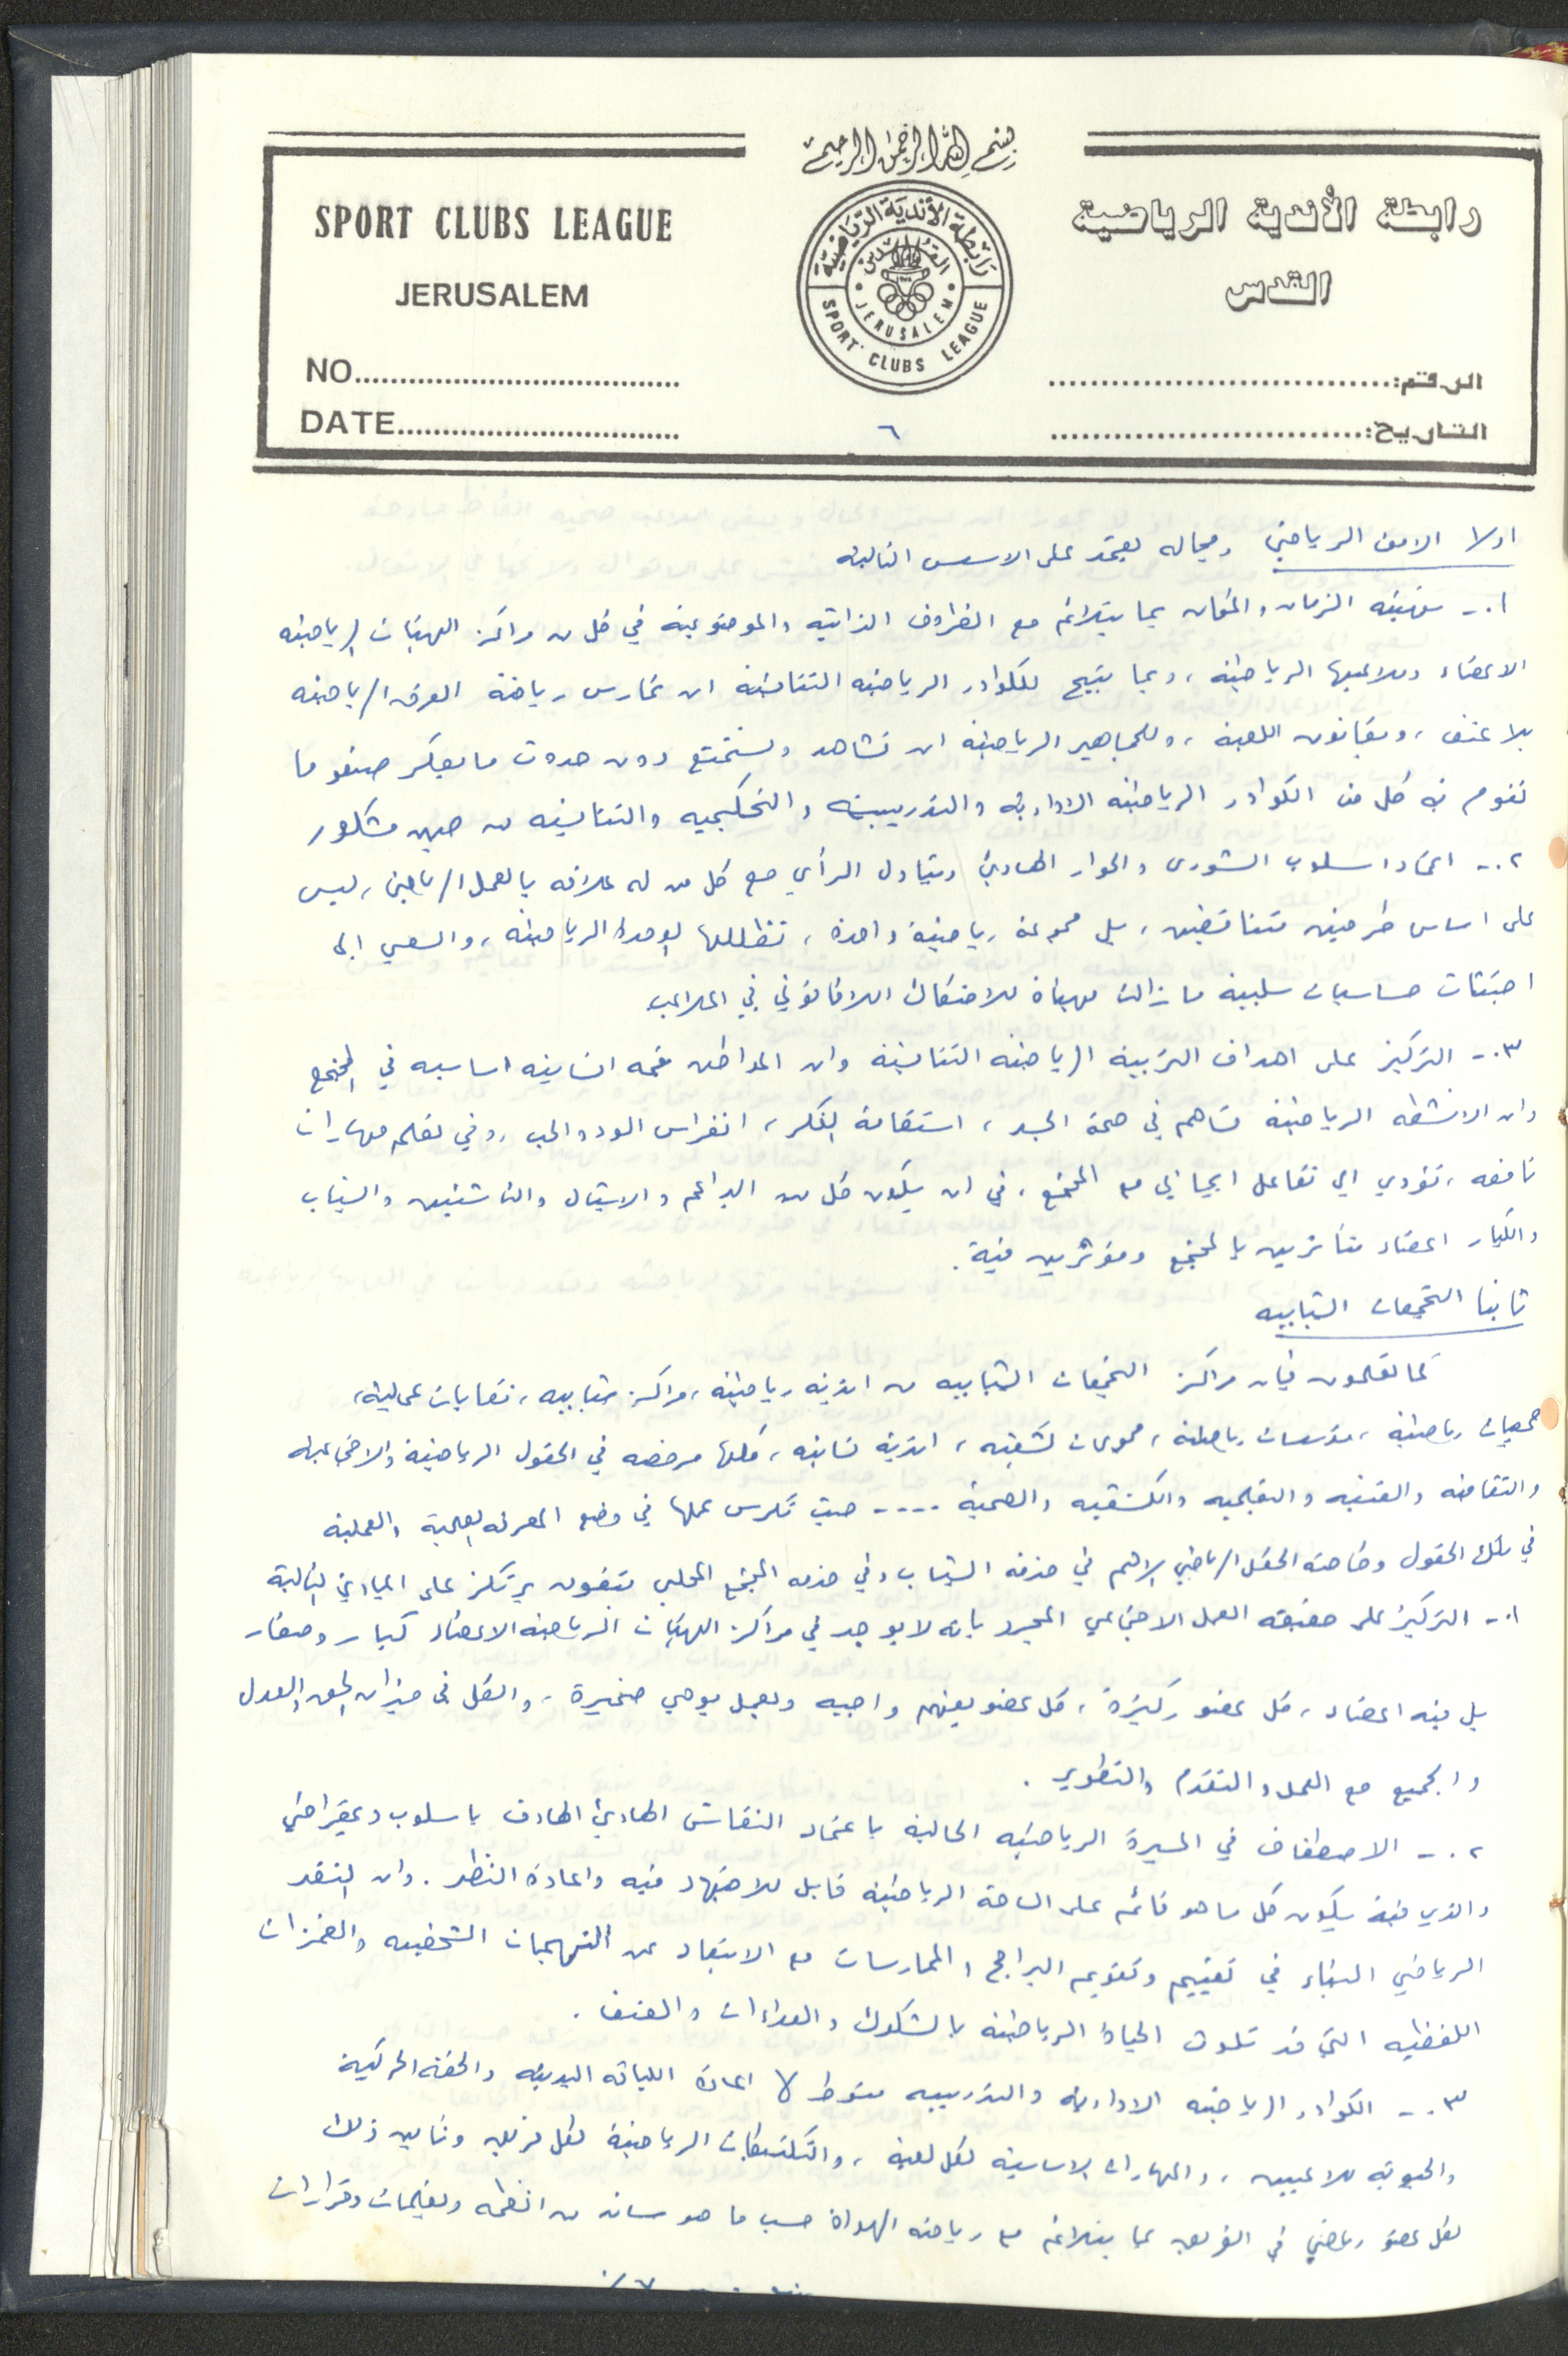 بسم الله الرحمن الرحيم
SPORT CLUBS LEAGUE
JERUSALEM
NO
DATE
رابطة الأندية الرياضية
القدس
الرقم:
التاريخ:
رابطة الأندية الرياضية
القدس
JERUSALEM
SPORT CLUBS LEAGUE
٦
اولا الامن الرياضي ومجاله يعتمد على الاسس التاليه
١.- تهيئه الزمان والمكان بما يتلائم مع الظروف الذاتيه والموضوعية في كل من مراكز الهيئات الرياضيه
الاعضاء وملاعبها الرياضيه ، وبما يتيح للكوادر الرياضيه التنافسيه ان تمارس رياضة الفرق الرياضيه
بلا عنف ، وبقانون اللعبة ، وللجماهير الرياضيه ان تشاهد وتستمتع دون حدوث ما يعكر صفو ما
تقوم به كل من الكوادر الرياضيه الاداريه والتدريبيه والتحكيميه والتنافسيه من جهد مشكور
٢.- اتخاذ اسلوب الشورى والحوار الهادئ وتبادل الرأي مع كل من له علاقه بالعمل الرياضي ، ليس
على اساس طرفين متناقضين ، بل مجموعة رياضية واحدة ، تظللها الوحدة الرياضيه ، والسعي الى
اجتثاث حساسيات سلبية ما زالت مهيأة للاحتكاك اللاقانوني في الملاعب
٣.- التركيز على اهداف التربية الرياضيه التنافسيه وان المواطن قيمه انسانيه اساسيه في المجتمع
وان الانشطه الرياضيه تساهم في صحة الجسد ، استقامة الفكر ، انغراس الود والحب ، وفي تعلم مهارات
نافعه ، تؤدي الى تفاعل ايجابي مع المجتمع ، في ان يكون كل من البراعم والاشبال والناشئين والشباب
والكبار اعضاء متأثرين بالمجتمع ومؤثرين فيه .
ثانيا التجمعات الشبابيه
كما تعلمون فان مراكز التجمعات الشبابيه من اندية رياضيه ، مراكز شبابيه ، نقابات عماليه ،
جمعيات رياضيه ، مؤسسات رياضيه ، مجموعات كشفيه ، اندية نسائيه ، كلها مرخصه في الحقول الرياضيه والاجتماعيه
والثقافيه والفنيه والتعليميه والكشفيه والصحية ---- حيث تكرس عملها في وضع المعرفه العلمية والعملية
في تلك الحقول وخاصة الحقل الرياضي في خدمة الشباب وفي خدمة المجتمع المحلي يرتكز على المبادئ التالية
١.- التركيز على حقيقه العمل الاجتماعي المجرد بانه لا يوجد في مراكز الهيئات الرياضيه الاعضاء كبار وصغار
بل فيه اعضاء ، كل عضو ركيزة ، كل عضو يفهم واجبه ويعمل بوحي ضميره ، والكل في ميزان الحق والعدل
والجميع مع العمل والتقدم والتطوير .
٢.- الاصطفاف في المسيرة الرياضيه الحالية باعتماد النقاش الهادئ الهادف باسلوب ديمقراطي
والذي فيه يكون كل ما هو قائم على الساحة الرياضيه قابل للاجتهاد فيه واعادة النظر . وان النقد
الرياضي البناء في تقييم وتقويم البرامج والممارسات مع الابتعاد عن التهجمات الشخصيه والغمزات
اللفظيه التي قد تلوث الحياة الرياضيه بالشكوك والعداءات والعنف .
٣.- الكوادر الرياضيه الاداريه والتدريبيه منوط لها اعادة اللياقه البدنيه والخفة الحركية
والحيويه للاعبين ، والمهارات الاساسية لكل لعبة ، والتكتيكات الرياضية لكل فريق وتأمين ذلك
لكل عضو رياضي في الفريق بما يتلائم مع رياضه الهواة حسب ما هو سائد من انظمه وتعليمات وقرارات